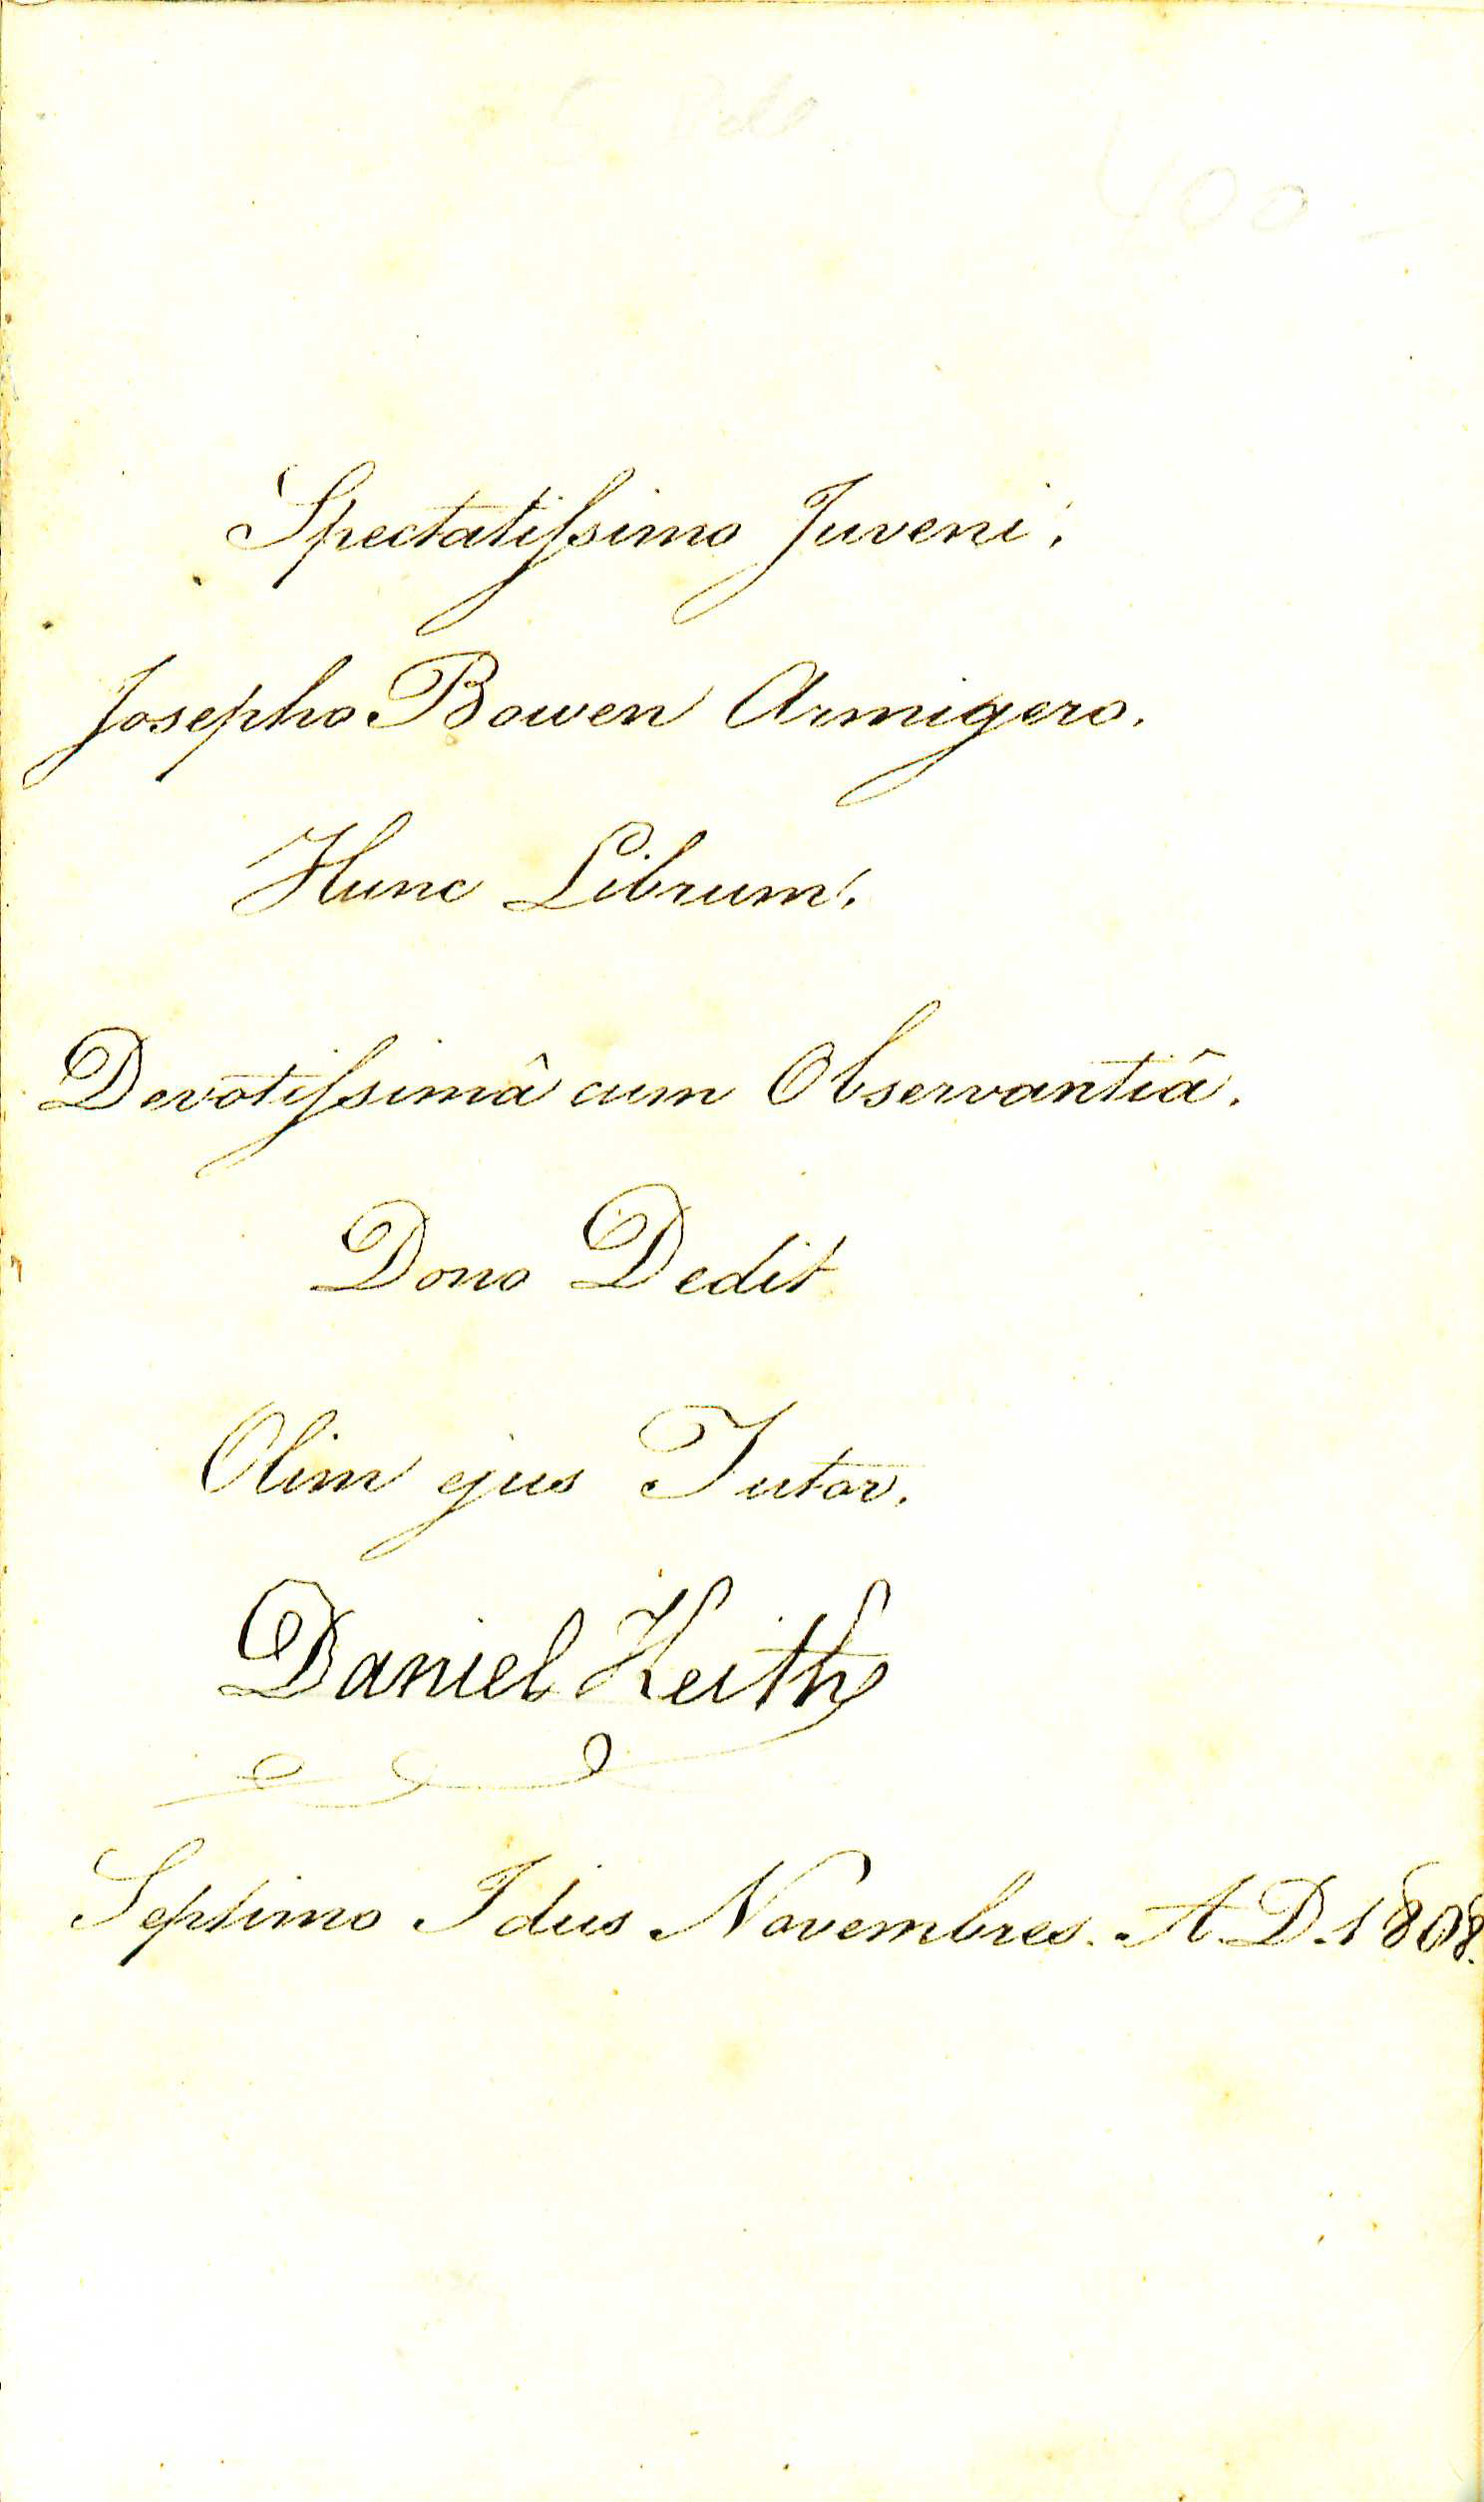 400
Spectatiſsimo Juveni,
Josepho Bowen Armigero.
Hunc Librum,
Devotiſsimâ cum Observantiâ.
Dono Dedit
Olim ejus Tutor.
Daniel Keith
Septimo Idus Novembres. A.D. 1808.